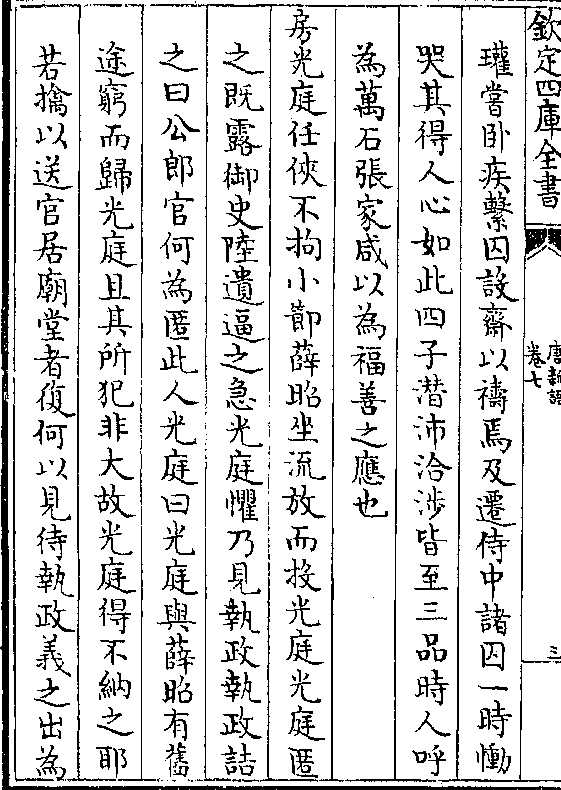 欽定四庫全書
唐新語
卷七
三
瓘嘗卧疾繫囚設齋以禱焉及遷侍中諸囚一時慟
哭其得人心如此四子潛沛洽涉皆至三品時人呼
為萬石張家咸以為福善之應也
房光庭任俠不拘小節薛昭坐流放而投光庭光庭匿
之既露御史陸遺逼之急光庭懼乃見執政執政詰
之曰公郎官何為匿此人光庭曰光庭與薛昭有舊
途窮而歸光庭且其所犯非大故光庭得不納之耶
若擒以送官居廟堂者復何以見待執政義之出為